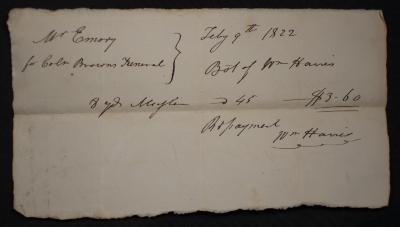 Mr Emory
for Colo Browns Funeral
Feby 9th 1822
Bot of Wm Harris
8 yds Muslin @ 45 — $3.60
Rd payment
Wm Harris